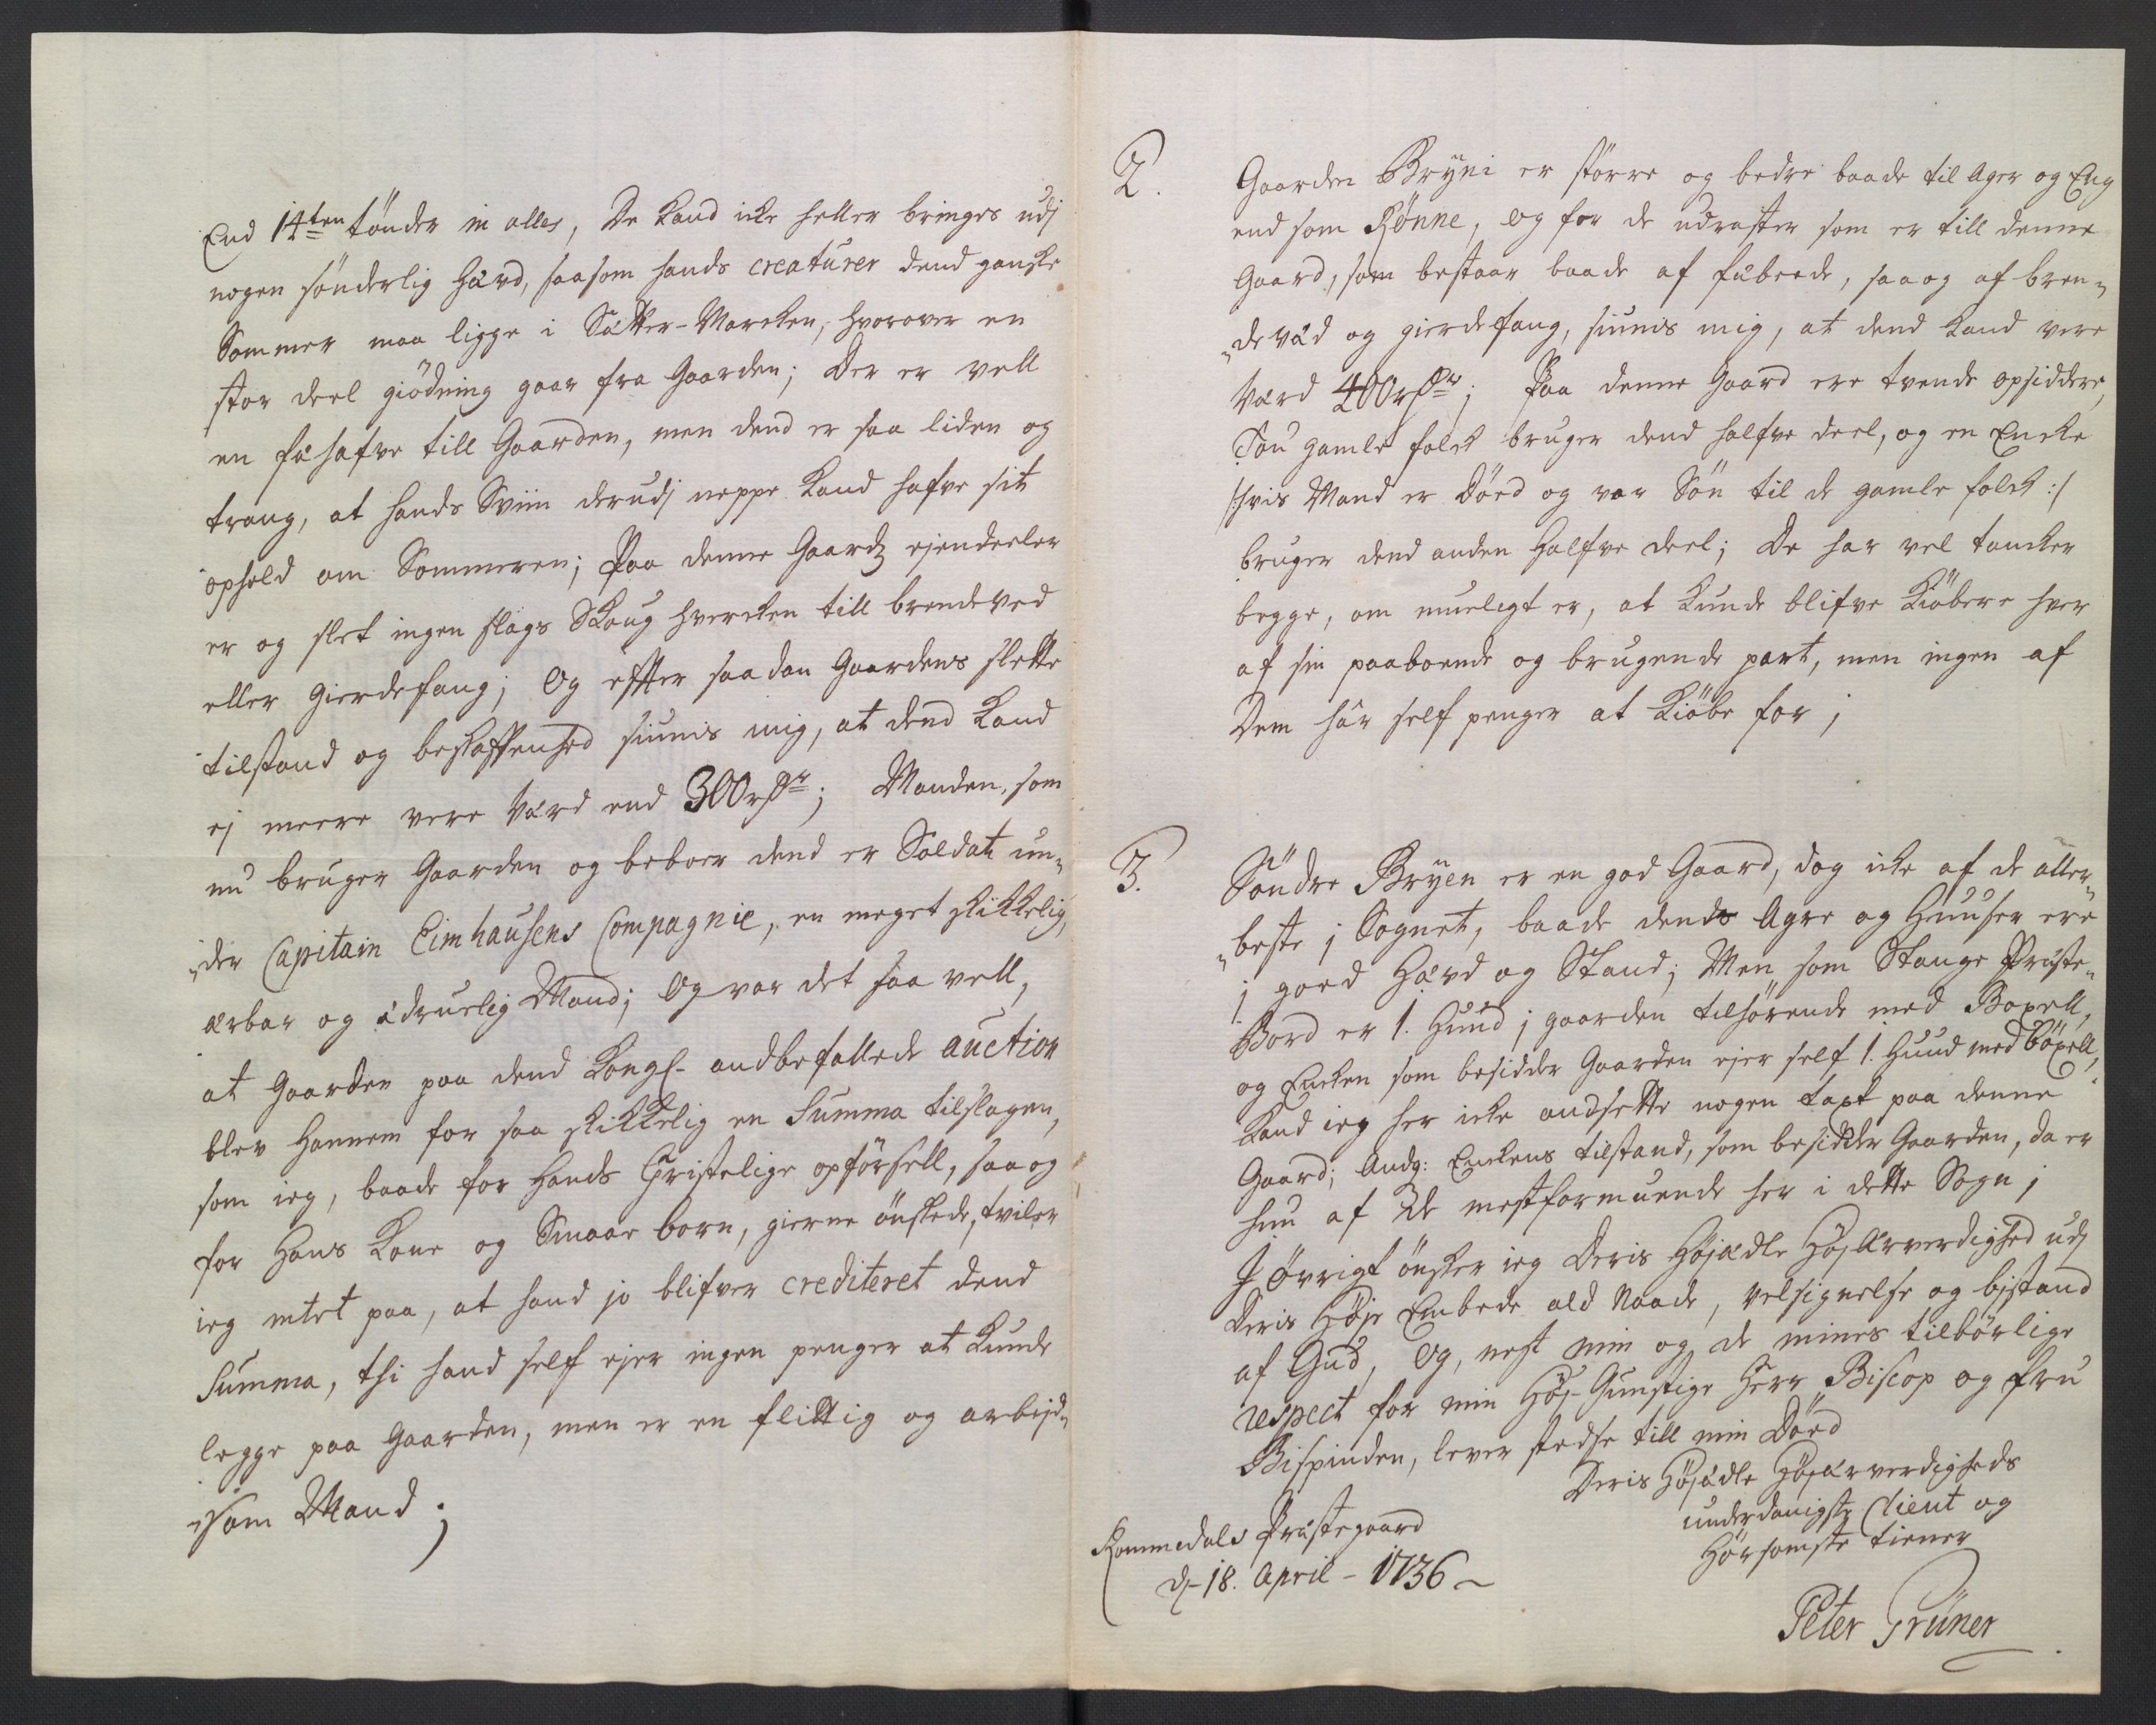 End 14ten tönder in alles, De kand icke heller bringes udj
nogen sönderlig Hævd, saasom hands creaturer dend gandske
Sommer maa ligge i Sætter-Marcken, hvorover en
stor deel giödning gaar fra Gaarden; Der er vell
en fæhafve till Gaarden, men dend er saa liden og
trang, at hands Sviin derudj neppe kand hafve sit
ophold om Sommeren; Paa denne Gaards ejendeeler
er og slet ingen slags Skoug hvercken till brendeved
eller gierdefang; Og effter saadan Gaardens slette
tilstand og beskaffenhed siunis mig, at dend kand
ej meere vere værd end 300 rdr; Manden, som
nu bruger Gaarden og beboer dend er Soldat un„
„der Capitain Eimhausens Compagnie, en meget skikkelig,
ærbar og ædruelig Mand; Og var det saa vell,
at Gaarden paa dend Kongl. andbefallede auction
blev hannem for saa skikkelig en Summa tilslagen,
som ieg, baade for hands Christelige opförsell, saa og
for Hans kone og Smaae born, gierne önskede, tviler
ieg intet paa, at hand jo blifver crediteret dend
Summa, thi hand self ejer ingen penger at kunde
legge paa Gaarden, men er en flittig og arbejd„
„som Mand;
2. Gaarden Bryni er större og bedre baade til Ager og Eng
end som Rönne, og for de udraster som er till denne
Gaard, som bestaar baade af fæbeede, saa og af bren„
„deved og gierdefang, siunis mig, at dend kand vere
værd 400 rdr; Paa denne Gaard ere tvende opsiddere,
Tou gamle folck bruger dend halfve deel, og en Encke
/: hvis Mand er Död og var Sön til de gamle folck :/
bruger dend anden Halfve deel; De har vel tancker
begge, om mueligt er, at kunde blifve Kiöbere hver
af sin paaboende og brugende part, men ingen af
Dem har self penger at kiöbe for;
3. Söndre Bryen er en god Gaard, dog icke af de aller„
„beste j Sognet, baade dends Agre og Huuser ere
j goed Hævd og Stand; Men som Stange Præste„
Bord er 1. Huud j gaarden tilhörende med Boxell,
og Encken som besidder Gaarden ejer self 1. Huud med böxell,
kand ieg her icke andsette nogen taxt paa denne
Gaard; Andg: Enckens tilstand, som besidder Gaarden, da er
hun af de mestformuende her i dette Sogn;
J Övrigt önsker ieg Deris Höjædle Höjærverdighed udj
Deris Höje Embede ald Naade, velsignelse og bistand
af Gud, Og, nest min og de mines tilbörlige
respect for min Höj-Gunstige Herr Biscop og fru
Bispinden, lever stedse till min Död
Deris Höjædle Höjærverdigheds
underdanigste Client og
Hörsomste tiener
Rommedals Præstegaard
d. 18. April - 1736
Peter Grüner